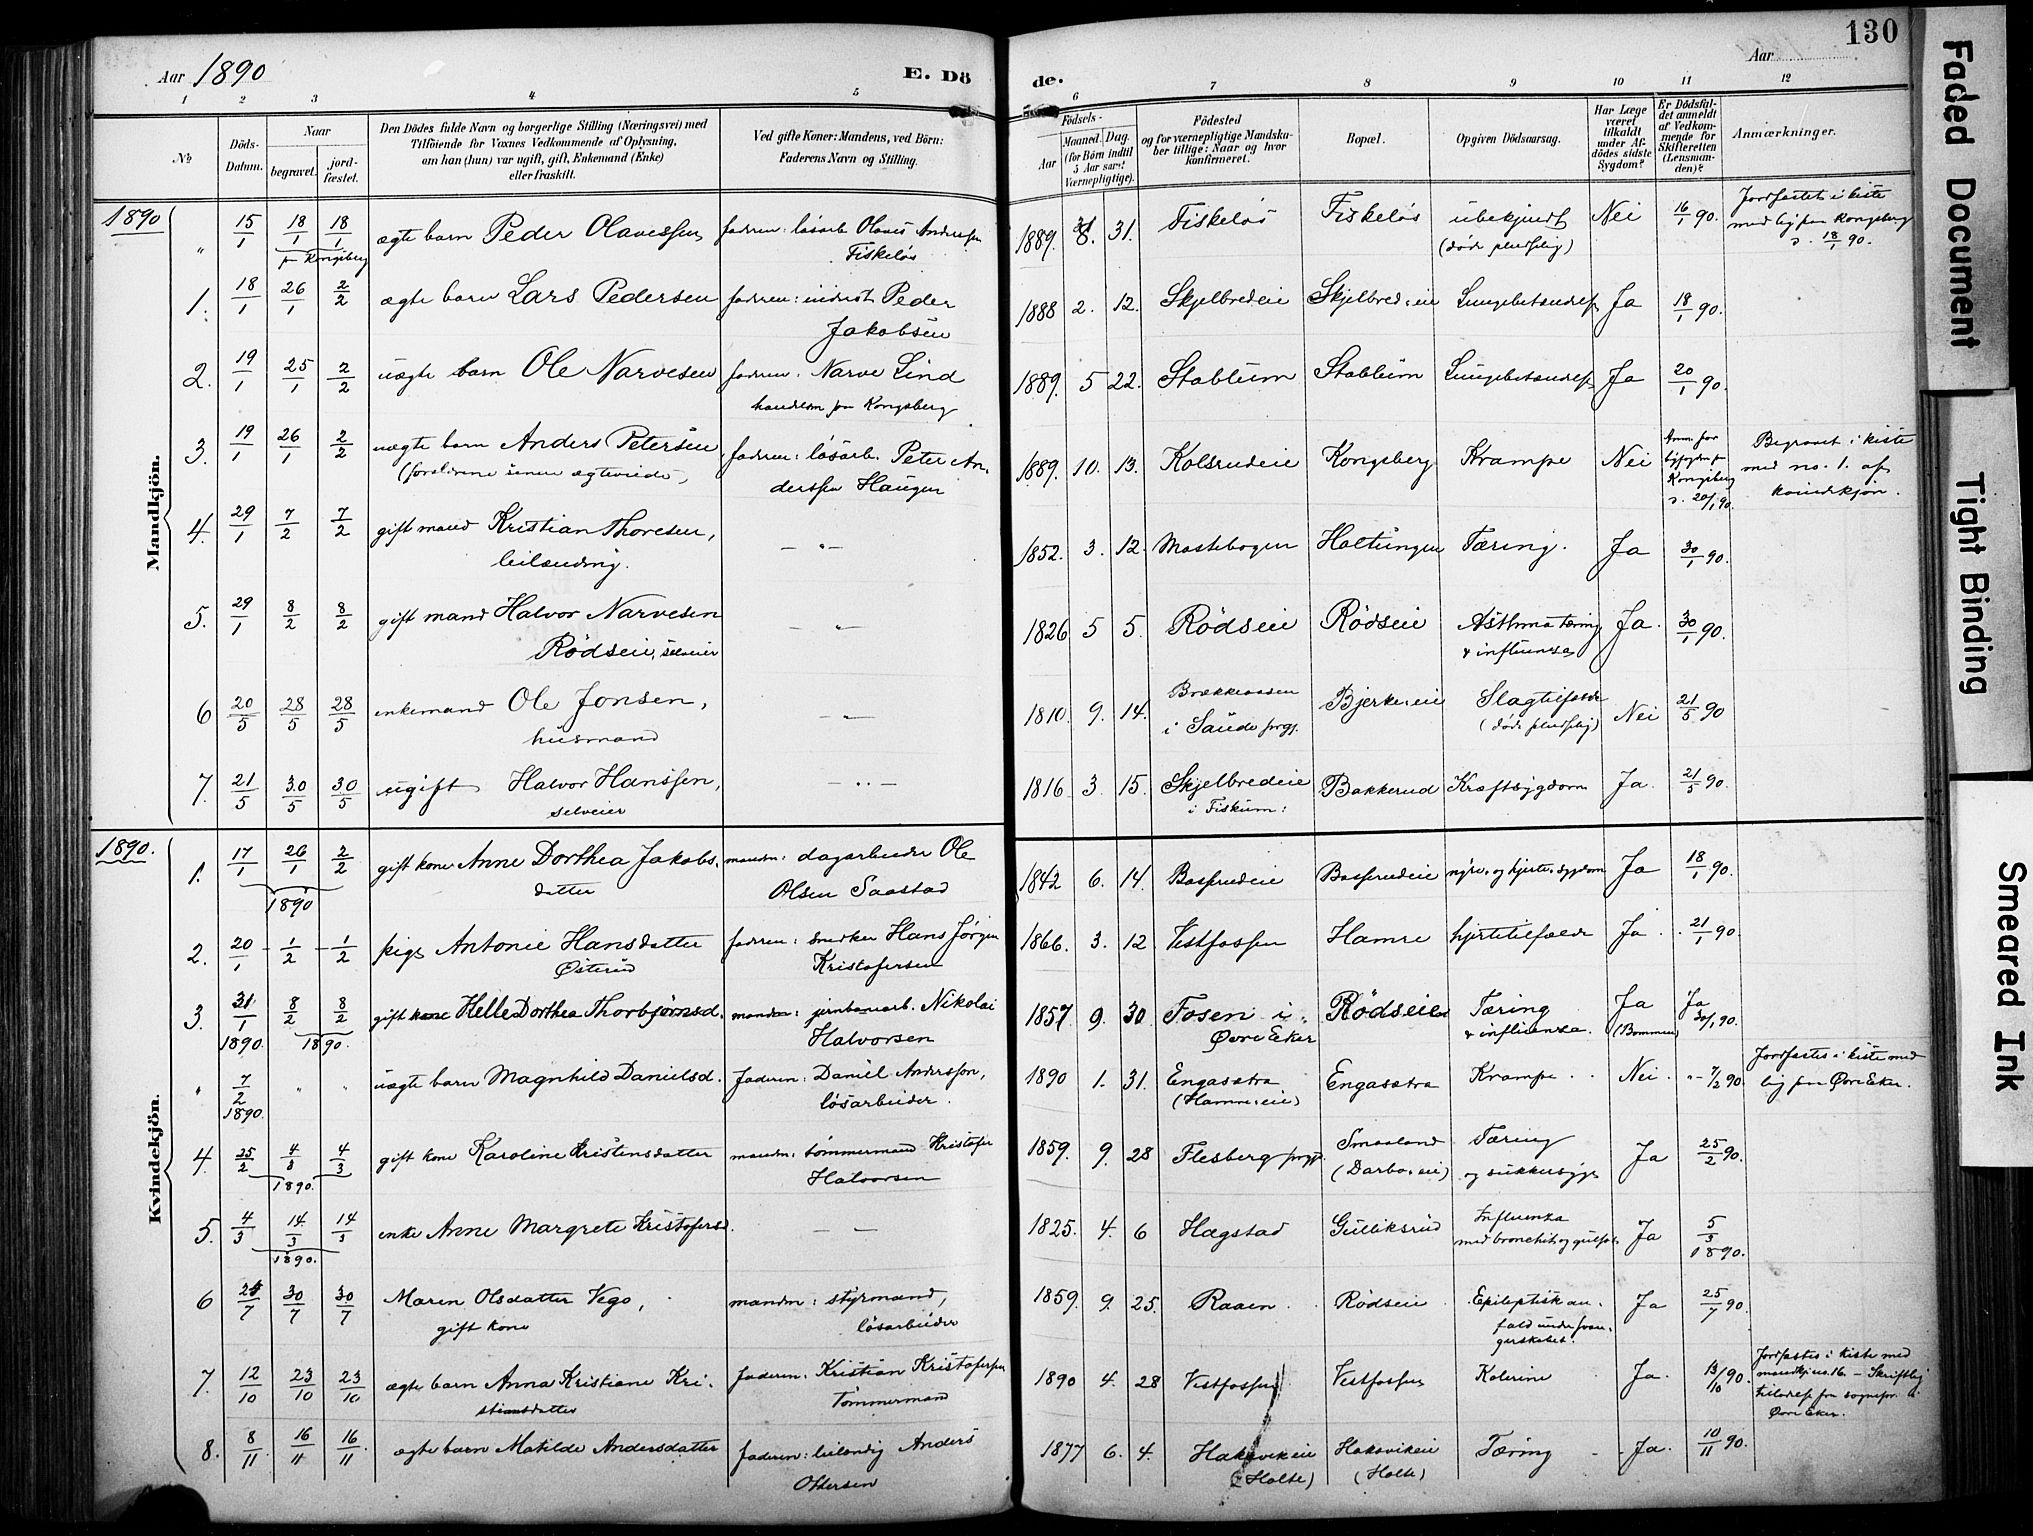 Aar 1890
E. Dö
de.
Aar
130
1 2 3 4 5 6 7 8 9 10 11 12
No
Döds-Datum.
Naar
begravet.
jord-fæstet.
Den Dödes fulde Navn og borgerlige Stilling (Næringsvei) med
Tilföiende for Voxnes Vedkommende af Oplysning,
om han (hun) var ugift, gift, Enkemand (Enke)
eller fraskilt.
Ved gifte Koner: Mandens, ved Börn:
Faderens Navn og Stilling.
Födsels-
Aar
Maaned. Dag.
(for Börn indtil
5 Aar samt
Værnepligtige).
Födested
og for værnepligtige Mandska-
ber tillige: Naar og hvor
konfirmeret.
Bopæl.
Opgiven Dödsaarsag.
Har Læge
været
tilkaldt
under Af-
dödes sidste
Sygdom?
Er Dödsfal-
det anmeldt
af Vedkom-
mende for
Skifteretten
(Lensman-
den)?
Anmærkninger.
Mandkjön.
1890
" 15/1 18/1 18/1 ægte barn Peder Olavessen faderen: løsarb. Olaves Anderssen 1889. 8. 31. Fiskeløs Fiskeløs ubekjendt Nei 16/1 90. Jordfæstet i kiste
fr. Kongsberg Fiskeløs (døde pludselig) med lig fra Kongsberg
d. 18/1 90.
1. 18/1 26/1 2/2 ægte barn Lars Pedersen faderen: inderst Peder 1888 2. 12. Skjelbredeie Skjelbredeie Lungebetændelse Ja 18/1 90.
Jakobsen
2. 19/1 25/1 2/2 uægte barn Ole Narvesen faderen: Narve Lind 1889. 5 22. Stablum Stablum Lungebetændelse Ja 20/1 90.
handlem. fra Kongsberg
3. 19/1 26/1 2/2 uægte barn Anders Petersen faderen: løsarb. Peter An- 1889. 10. 13. Kolsrudeie Kongsberg Krampe Nei Begravet i kiste
(forældrene senere ægteviede) derssen Haugen Kongsberg d. 20/1 90. med no. 1. af
kvindekjøn.
4. 29/1 7/2 7/2 gift mand Kristian Thoresen, — " — 1852. 3. 12. Mastebogen Holtungen Tæring. Ja 30/1 90.
leilænding.
5. 29/1 8/2 8/2 gift mand Halvor Narvesen — " — 1826 5 5. Rödseie Rödseie Asthma tæring Ja. 30/1 90.
Rödseie, selveier & influensa
6 20/5 28/5 28/5 enkemand Ole Jonsen, — " — 1810. 9. 14. Brækkeaasen Bjerkeeie Slagtilfælde Nei 21/5 90
husmand i Saude prgj. (døde pludselig)
7. 21/5 30/5 30/5 ugift Halvor Hanssen, — " — 1816 3. 15. Skjelbredeie Bakkerud Kræftsygdom Ja. 21/5 90.
selveier i Fiskum:
Kvindekjön.
1890.
1. 17/1 26/1 2/2 gift kone Anne Dorthea Jakobs- manden: dagarbeider Ole 1842 6. 14. Basserudeie Basserudeie nyre- og hjerte-sygdom Ja 18/1 90.
1890 datter Olsen Saastad
2. 20/1 1/2 1/2 pige Antonie Hansdatter faderen: snedker Hans Jørgen 1866. 3. 12 Vestfossen Hamre hjertetilfælde Ja. 21/1 90.
Østerud Kristofersen
3. 31/1 8/2 8/2 gift kone Helle Dorthea Thorbjørnsd. manden: jernbanearb. Nikolai 1857. 9. 30. Fosen i Rödseie Tæring Ja Ja 30/1 90.
1890. 1890. Halvorsen Øvre Eker & influensa. (Bommen)
" 7/2 " " uægte barn Magnhild Danielsd. Faderen: Daniel Anderssøn, 1890 1. 31. Engasætra Engasætra Krampe Nei. 7/2 90. Jordfæstes i kiste med
1890. løsarbeider. (Hamre-eie) lig fra Øvre Eker.
4. 25/2 4/8 4/3 gift kone Karoline Kristensdatter manden: tømmermand Kristofer 1859. 9. 28 Flesberg prgj. Smaaland Tæring Ja 25/2 90.
1890. Halvorsen (Darboeeie) og sukkersyge
5. 4/3 14/3 14/3 enke Anne Margrete Kristofersd. — " — 1825. 4. 6 Hægstad Gulliksrud Influenza Ja 5/3 1890.
1890. med bronchit. og gulsot.
6 24/7 30/7 30/7 Maren Olsdatter Vego, manden: styrmand, 1859. 9. 25. Raaen Rødseie Epileptisk an- Ja 25/7 90.
gift kone løsarbeider fald under svan-
gerskabet.
7. 12/10 23/10 23/10 ægte barn Anna Kristiane Kri- Faderen: Kristian Kristofersen 1890 4. 28 Vestfossen Vestfossen Kolerine Ja. 13/10 90. Jordfæstes i kiste med
stiansdatter Tømmermand mandkj. no. 16. — Skriftlig
tiladelse fra sognepr. i
Øvre Eker.
8. 8/11 16/11 16/11 ægte barn Matilde Andersdatter Faderen: leilændig Anders 1877 6. 4. Hakavikeie Hakavikeie Tæring Ja. 10/11 90.
Ottersen (Holte) (Holte)
Faded Document
Tight Binding
Smeared Ink